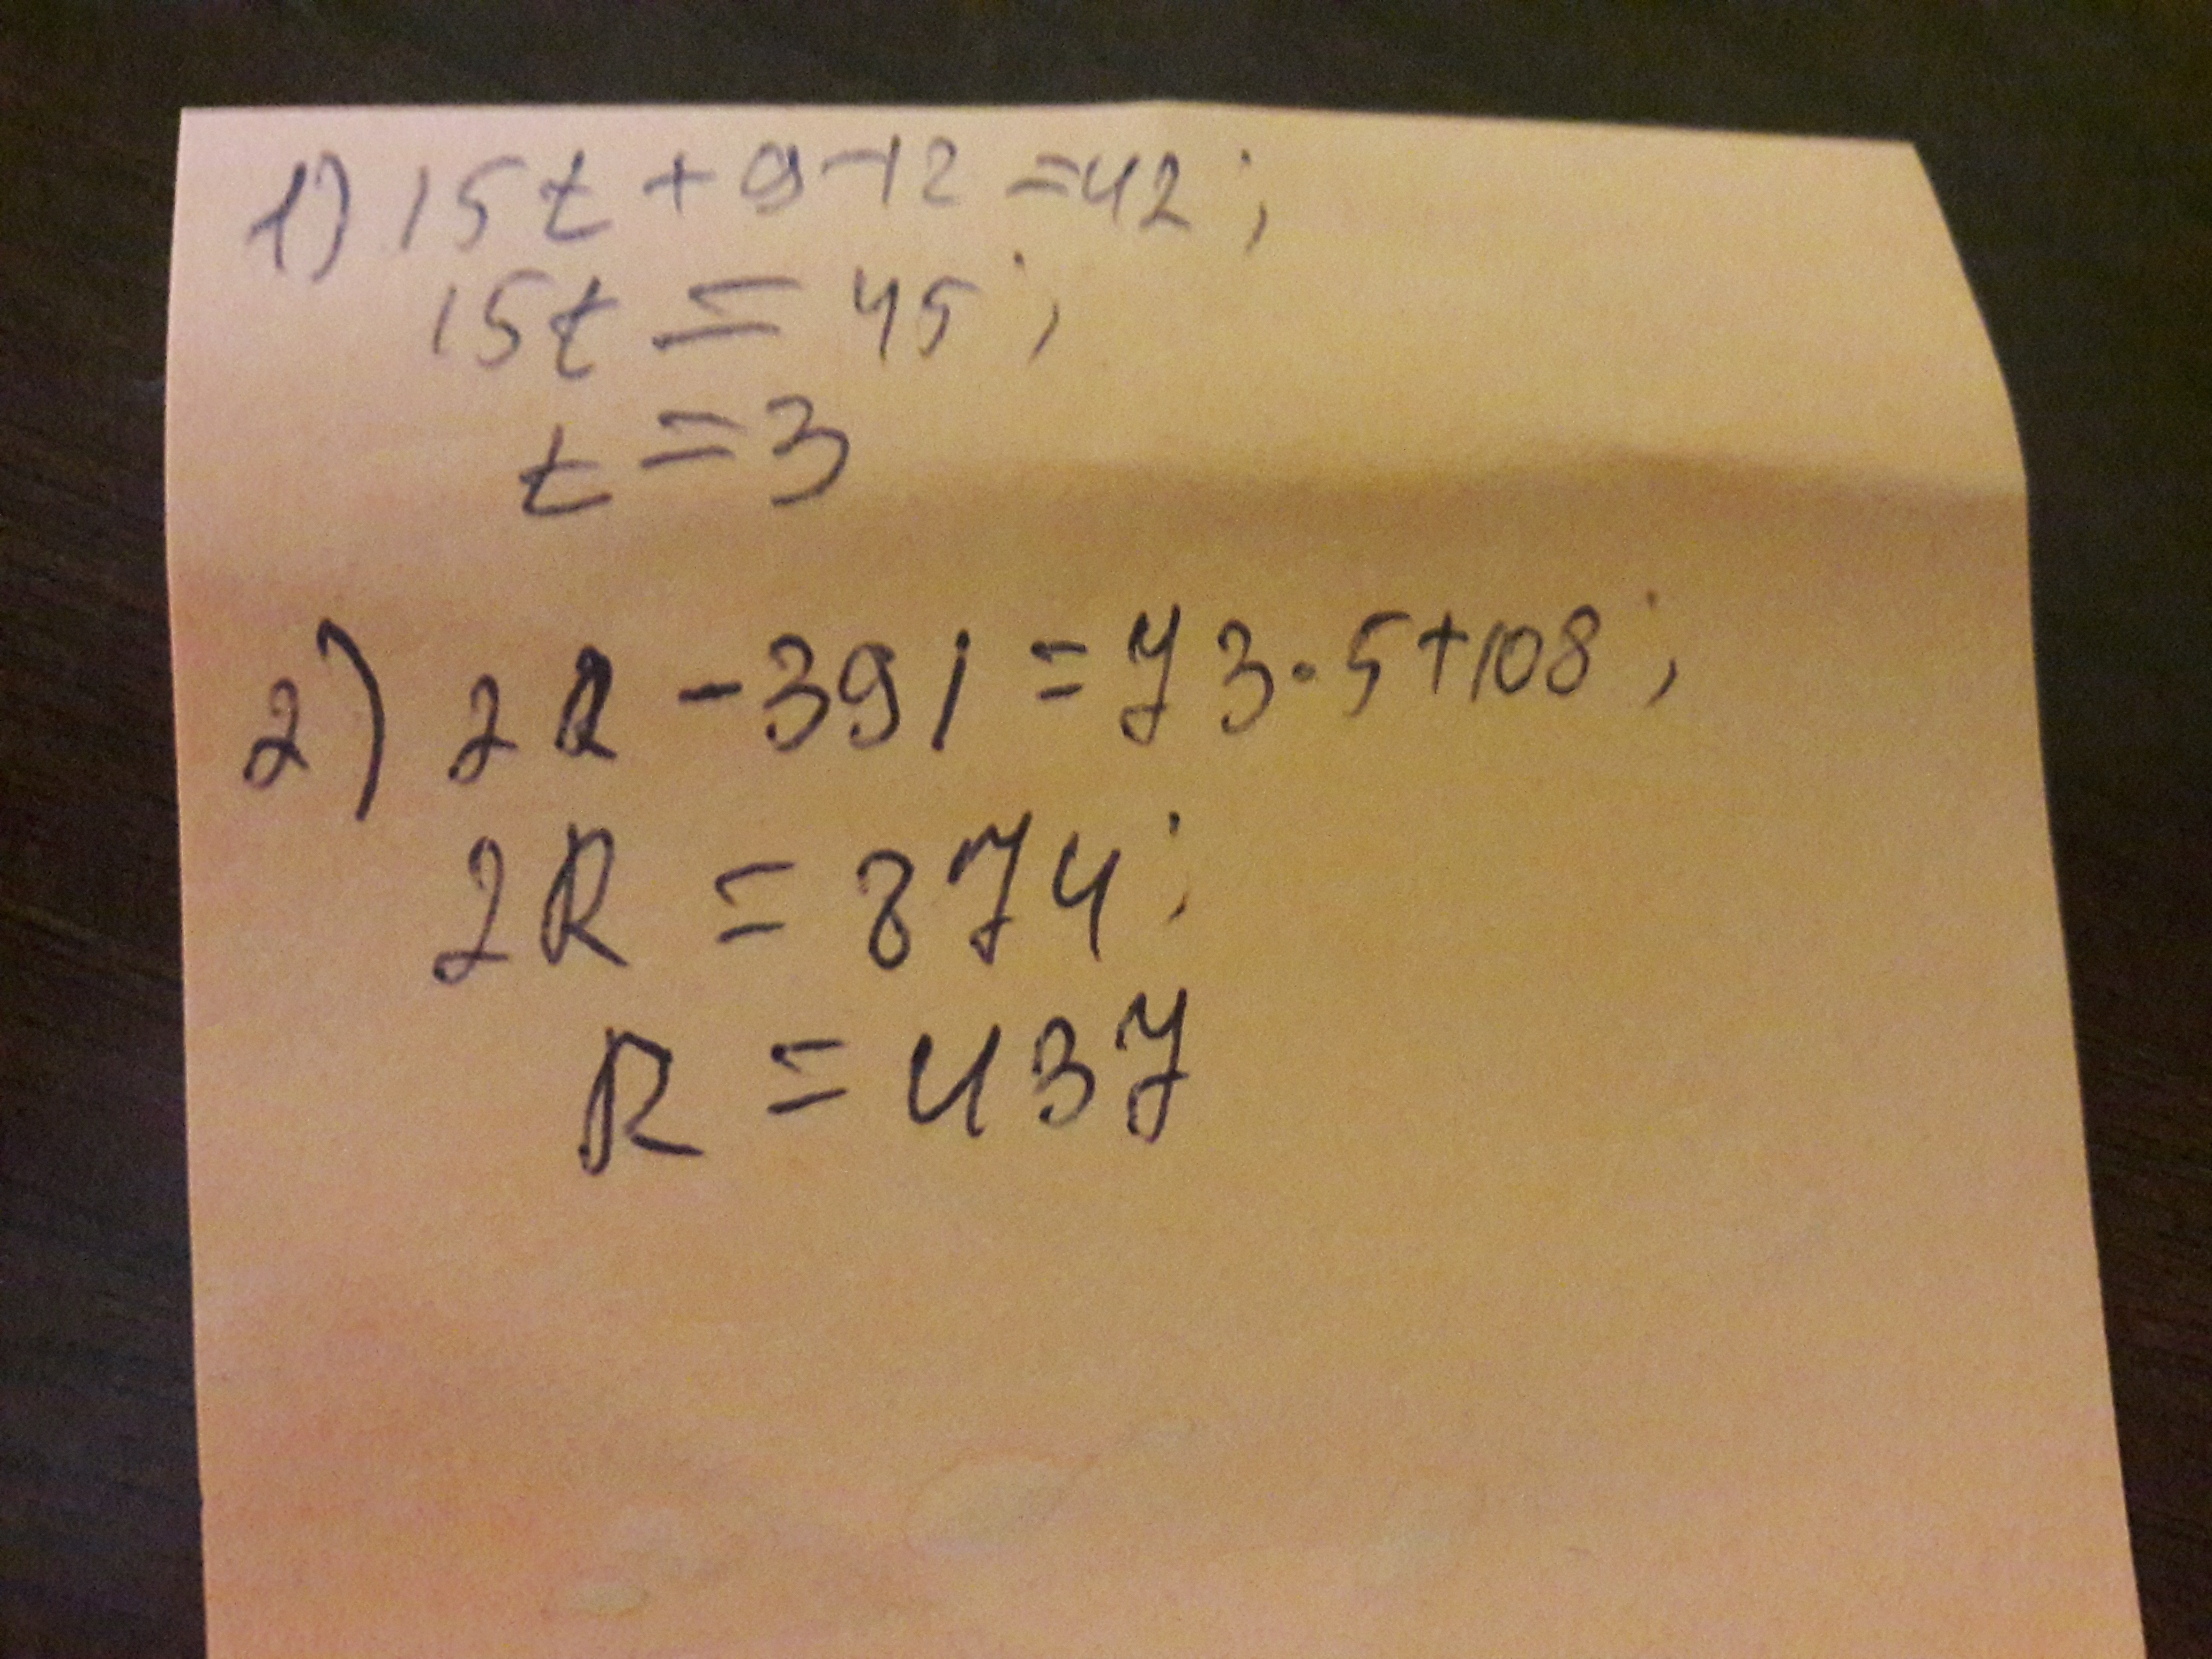 1) 15t + 9 - 12 = 42;
15t = 45;
t = 3
2) 2R - 391 = 73·5+108;
2R = 874;
R = 437